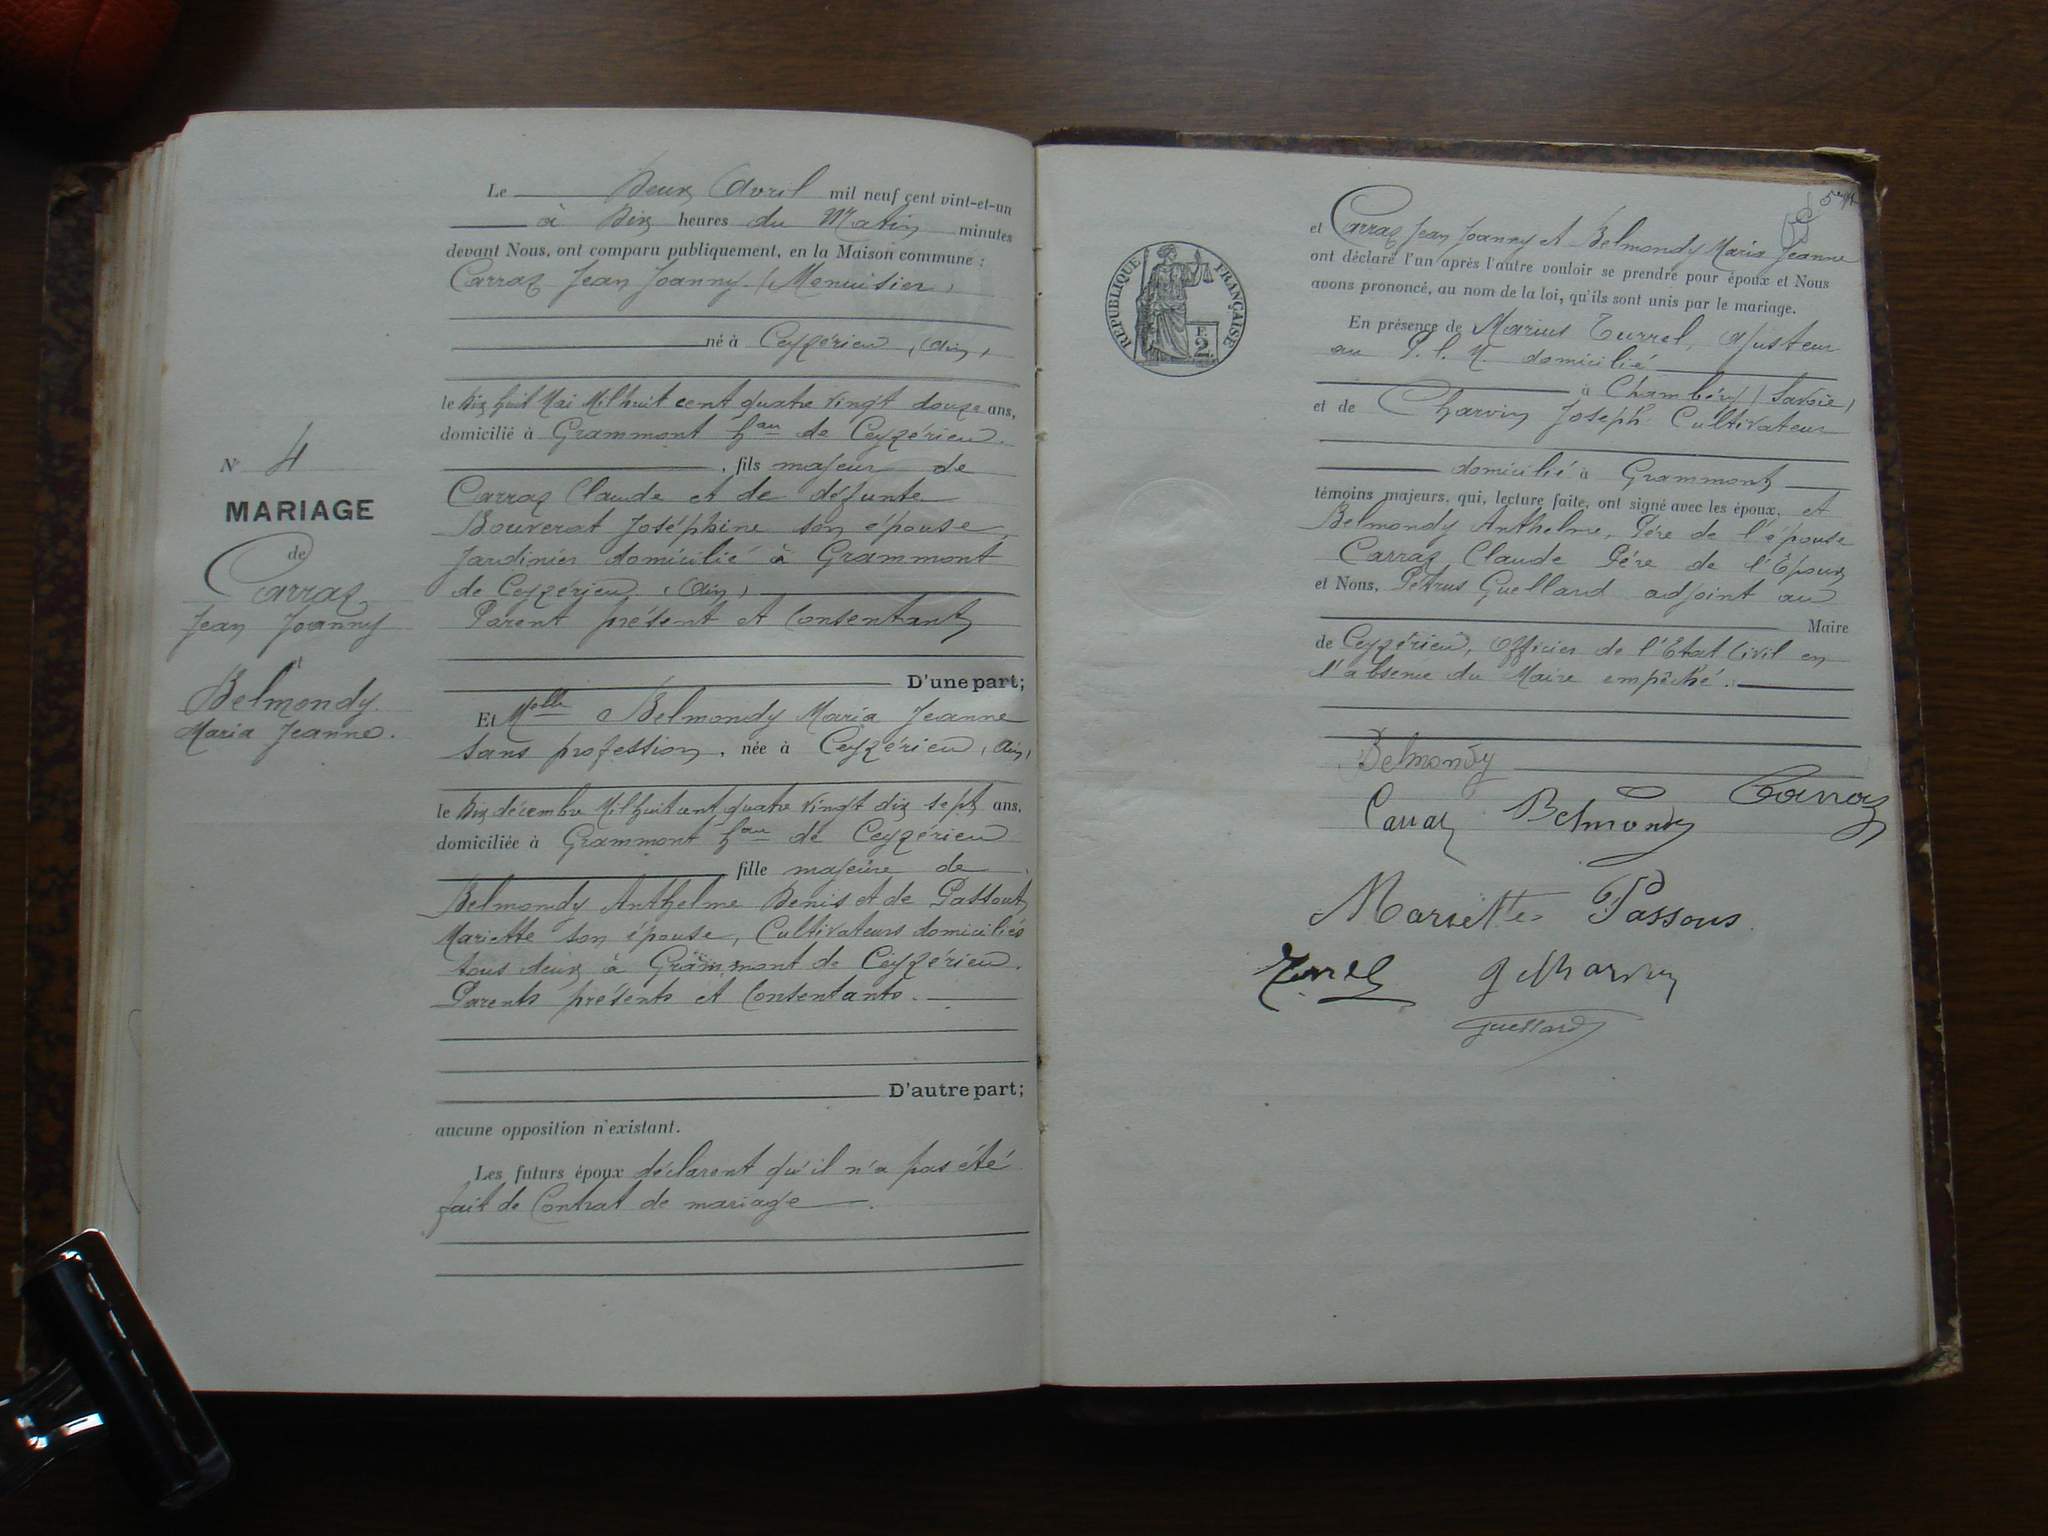 N° 4
MARIAGE
de
Carraz
Jean Joanny
et
Belmondy
Maria Jeanne.
Le Deux Avril mil neuf cent vint-et-un
à Dix heures du Matin minutes
devant Nous, ont comparu publiquement, en la Maison commune :
Carraz Jean Joanny (Menuisier)
né à Ceyzérieu (Ain)
le Dix huit Mai Mil huit cent quatre vingt douze ans,
domicilié à Grammont hau de Ceyzérieu.
, fils majeur de
Carraz Claude et de défunte
Bouverat Joséphine son épouse
Jardinier domicilié à Grammont
de Ceyzérieu (Ain)
Parent présent et Consentant
D'une part;
Et Melle Belmondy Maria Jeanne
sans profession, née à Ceyzérieu (Ain)
le Dix décembre Mil huit cent quatre vingt dix sept ans,
domiciliée à Grammont hau de Ceyzérieu
fille majeure de
Belmondy Anthelme Denis et de Passout
Mariette son épouse, Cultivateurs domiciliés
tous deux à Grammont de Ceyzérieu.
Parents présents et Consentants.
D'autre part;
aucune opposition n'existant.
Les futurs époux déclarent qu'il n'a pas été
fait de Contrat de mariage.
RÉPUBLIQUE FRANÇAISE
F.
2.
et Carraz Jean Joanny et Belmondy Maria Jeanne
ont déclaré l'un après l'autre vouloir se prendre pour époux et Nous
avons prononcé, au nom de la loi, qu'ils sont unis par le mariage.
En présence de Marius Turrel, Ajusteur
au P. L. M. domicilié
à Chambéry (Savoie)
et de Charvin Joseph Cultivateur
domicilié à Grammont
témoins majeurs, qui, lecture faite, ont signé avec les époux, et
Belmondy Anthelme, Père de l'épouse
Carraz Claude Père de l'Époux
et Nous, Pétrus Guellard adjoint au
Maire
de Ceyzérieu, Officier de l'Etat Civil en
l'absence du Maire empêché.
Belmondy
Carraz Belmondy Carraz
Mariette Passous
Turrel J Charvin
Guellard